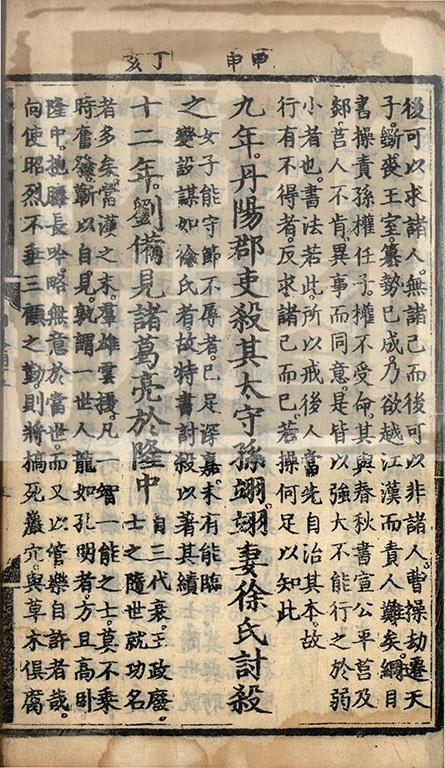 甲申
丁亥
後可以求諸人。無諸己而後可以非諸人。曹操劫遷天
子。斵喪王室。簒勢已成。乃欲越江漢而責人。難矣。綱目
書操責孫權任子。權不受命。其與春秋書宣公平莒及
郯。莒人不肯。異事而同意。是皆以強大不能行之於弱
小者也。書法若此。所以戒後人當先自治其本。故
行有不得者。反求諸己而已。若操何足以知此
九年。丹陽郡吏殺其太守孫翊。翊妻徐氏討殺
之
女子能守節不辱者。已足深嘉。未有能臨
變設謀如徐氏者。故特書討殺以著其績
十二年。劉備見諸葛亮於隆中
自三代衰。王政廢。
士之隨世就功名
者多矣。當漢之末。羣雄雲擾。凡 智一能之士。莫不乘
時奮發。蘄以自見。孰謂一世人龍如孔明者。方且高卧
隆中。抱膝長吟。略無意於當世。而又以管樂自許者哉。
向使昭烈不垂三顧之勤。則將槁死巖穴。與草木俱腐